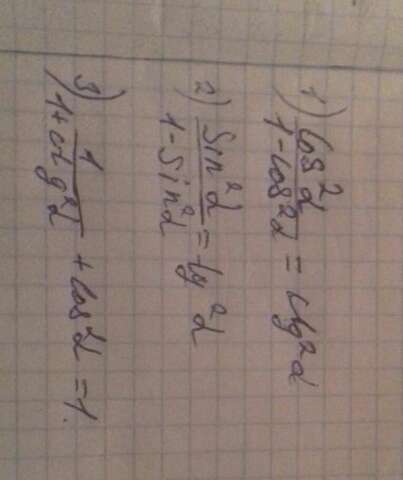 1) cos²α / 1-cos²α = ctg²α
2) sin²α / 1-sin²α = tg²α
3) 1 / 1+ctg²α + cos²α = 1.